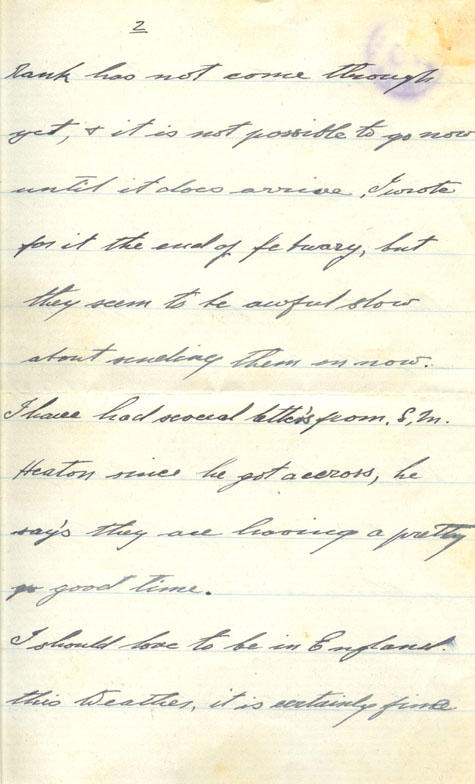 2
Rank has not come through
yet, & it is not possible to go now
until it does arrive, I wrote
for it the end of febuary, but
they seem to be awful slow
about sending them on now.
I have had several letter's from. S, M.
Heaton since he got accross, he
say's they are having a pretty
good time.
I should love to be in England.
this Weather, it is certainly fine